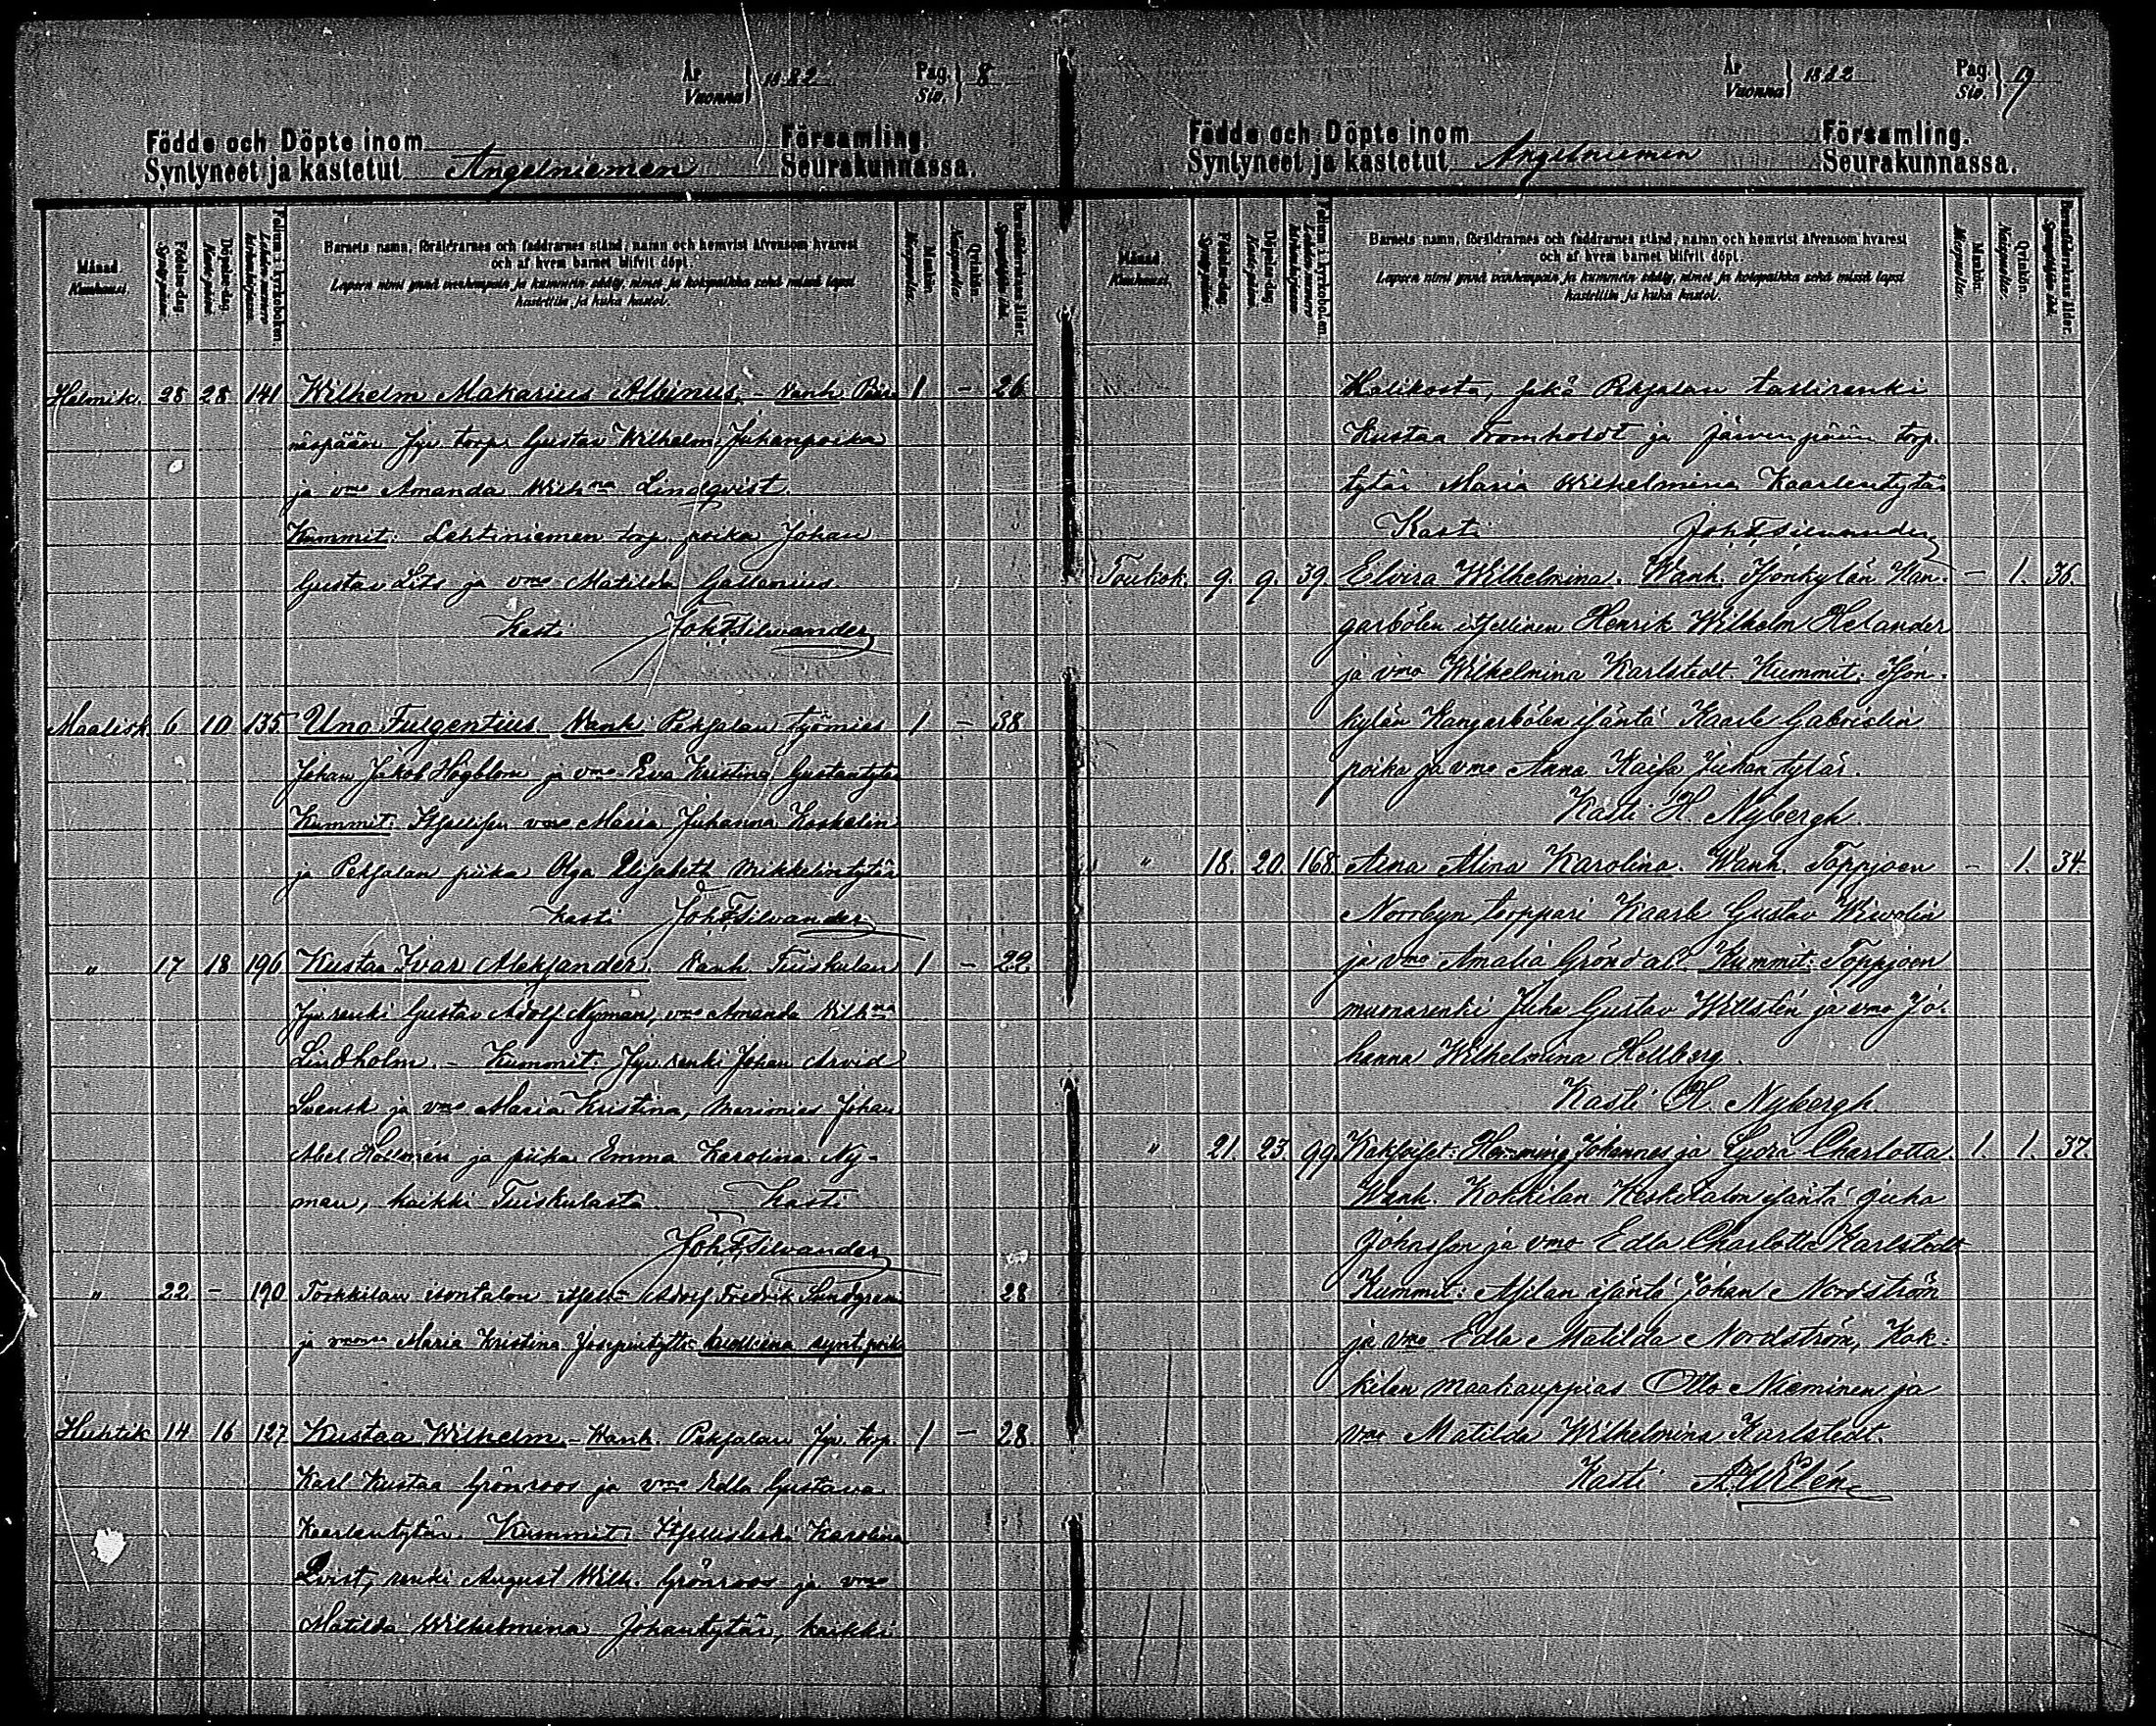 År
Vuonna } 1882 Pag.
Siv. } 8
Födde och Döpte inom Församling.
Syntyneet ja kastetut Angelniemen Seurakunnassa.
Månad
Kuukausi.
Födelse-dag.
Syntymäpäivä.
Döpelse-dag.
Kastepäivä.
Folium i kyrkoboken.
Barnets namn, föräldrarnes och faddrarnes stånd, namn och hemvist äfvensom hvarest
och af hvem barnet blifvit döpt.
Lapsen nimi ynnä vanhempain ja kummein sääty, nimet ja kotopaikka sekä missä lapsi
kastettiin ja kuka kastoi.
Mankön.
Miespuolia.
Qvinkön.
Naispuolia.
Barnaföderskans ålder.
Helmik. 28 28 141 Wilhelm Makarius Albinus. - Vanh. 1 - 26
Jyv. torp. Gustav Wilhelm Juhanpoika
ja vmo Amanda Wilhna Lindqvist.
Kummit: Lehtiniemen torp. poika Johan
Gustav ja vmo Matilda Gallenius
Kasti Joh. F. Silvander
Maalisk. 6 10 135 Uno Fulgentius. Vanh. Peksalan työmies 1 - 38
Johan Jakob Högblom ja vmo Eva Kristina Gustantytär
Kummit: Itsellisen vmo Maria Juhanna Koskelin
ja Peksalan piika Olga Elisabeth Mikkelintytär
Kasti Joh. F. Silvander
" 17 18 196 Kustaa Ivar Aleksander. Vanh Tuiskulan 1 - 22
Jyv renki Gustav Adolf Nyman, vmo Amanda Wilhna
Lindholm. - Kummit: Jyv. renki Johan Arvid
Svensk ja vmo Maria Kristina, Merimies Johan
Abel Hollmén ja piika Emma Karolina Ny-
man, kaikki Tuiskulasta. Kasti
Joh. F. Silvander
" 22 - 190 Torkkilan isontalon itsell. Adolf Fredrik Sundgren 28
ja vmonsa Maria Kristina Josepintytär kuolleena synt. poika
Huhtik 14 16 127 Kustaa Wilhelm - Vanh. Peksalan Jyv. torp. 1 - 28
Karl Kustaa Grönroos ja vmo Edla Gustava
Kaarlentytär. Kummit: Itsellisleski Karolina
Qvist, renki August Wilh. Grönroos ja vmo
Matilda Wilhelmina Johantytär, kaikki
År
Vuonna } 1882 Pag.
Siv. } 9
Födde och Döpte inom Församling.
Syntyneet ja kastetut Angelniemen Seurakunnassa.
Månad
Kuukausi.
Födelse-dag.
Syntymäpäivä.
Döpelse-dag.
Kastepäivä.
Folium i kyrkoboken.
Barnets namn, föräldrarnes och faddrarnes stånd, namn och hemvist äfvensom hvarest
och af hvem barnet blifvit döpt.
Lapsen nimi ynnä vanhempain ja kummein sääty, nimet ja kotopaikka sekä missä lapsi
kastettiin ja kuka kastoi.
Mankön.
Miespuolia.
Qvinkön.
Naispuolia.
Barnaföderskans ålder.
Halikosta, sekä Peksalan tallirenki
Kustaa Fromholdt ja Järvenpään torp.
tytär Maria Wilhelmina Kaarlentytär
Kasti Joh. F. Silvander
Toukok. 9. 9. 39. Elvira Wilhelmina. Wanh. Isonkylän Kan- - 1. 36.
garbölen itsellinen Henrik Wilhelm Helander
ja vmo Wilhelmina Karlstedt. Kummit: Ison-
kylän Kangarbölen isäntä Kaarle Gabrielin
poika ja vmo Anna Kaisa Juhantytär.
Kasti H. Nybergh.
" 18. 20. 168. Aina Alina Karolina. Wanh. Toppjoen - 1. 34.
Norrbyn torppari Kaarle Gustav Wiwolin
ja vmo Amalia Gröndal. Kummit: Toppjoen
muonarenki Juha Gustav Willstén ja vmo Jo-
hanna Wilhelmina Hellberg.
Kasti H. Nybergh.
" 21. 23. 99. Kaksoiset: Hemming Johannes ja Lydia Charlotta. 1. 1. 37.
Wanh. Kokkilan Keskitalon isäntä Juha
Johansson ja vmo Edla Charlotta Karlstedt
Kummit: isäntä Johan Nordström
ja vmo Edla Matilda Nordström, Kok-
kilan maakauppias Otto Nieminen ja
vmo Matilda Wilhelmina Karlstedt.
Kasti